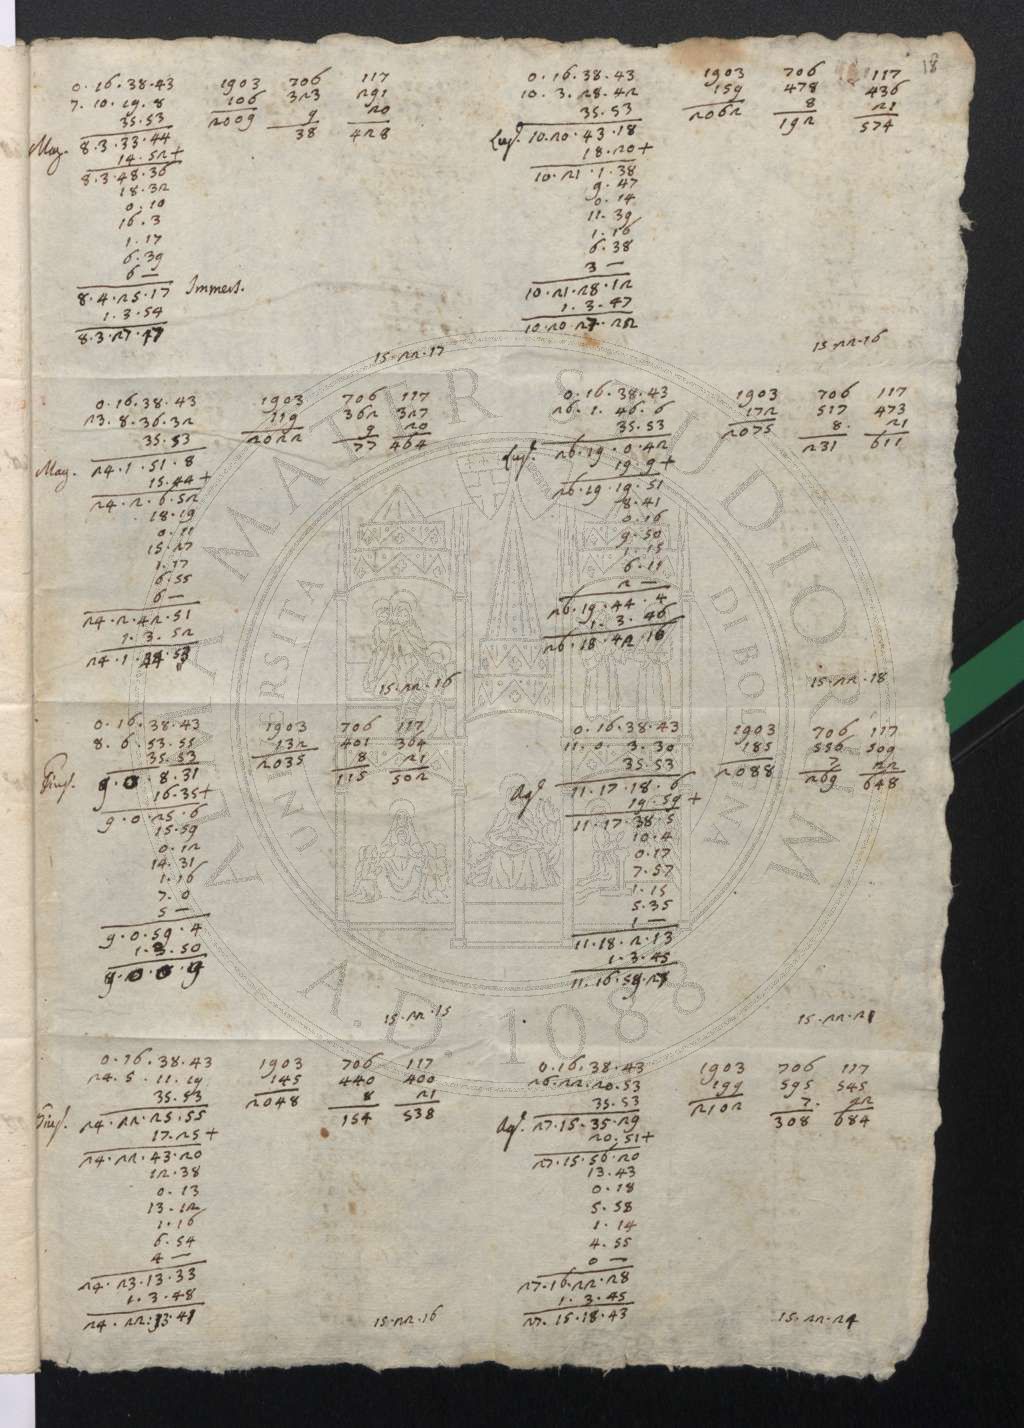 18
0.16.38.43 1903 706 117
7.10.19.8 106 323 291
35.53 2009 9 20
May. 8.3.33.44 38 428
14.52+
8.3.48.36
18.32
0.10
16.3
1.17
6.39
6 —
8.4.25.17 Immers.
1.3.54
8.3.27.47
15.22.17
0.16.38.43 1903 706 117
10.3.28.42 159 478 436
35.53 2062 8 21
Lugl. 10.20.43.18 192 574
18.20+
10.21.1.38
9.47
0.14
11.39
1.16
6.38
3 —
10.21.28.12
1.3.47
10.20.27.22
15.22.16
0.16.38.43 1903 706 117
23.8.36.32 119 362 327
35.53 2022 9 20
May. 24.1.51.8 77 464
15.44+
24.2.6.52
18.19
0.11
15.27
1.17
6.55
6 —
24.2.42.51
1.3.52
24.1.
15.22.16
0.16.38.43 1903 706 117
26.1.46.6 172 517 473
35.53 2075 8. 21
Lugl. 26.19.0.42 231 611
19.9+
26.19.19.51
8.41
0.16
9.50
1.15
6.11
2 —
26.19.44.4
1.3.46
26.18.42.16
15.22.18
0.16.38.43 1903 706 117
8.6.53.55 132 401 364
35.53 2035 8 21
Giug. 9.0.8.31 115 502
16.35+
9.0.25.6
15.59
0.12
14.31
1.16
7.0
5 —
9.0.59.4
1.3.50
9.0.0.9
15.22.15
0.16.38.43 1903 706 117
11.0.3.30 185 556 509
35.53 2088 7 22
Ag. 11.17.18.6 269 648
19.59+
11.17.38.5
10.4
0.17
7.57
1.15
5.35
1 —
11.18.2.13
1.3.45
11.16.59.27
15.22.21
0.16.38.43 1903 706 117
24.5.11.19 145 440 400
35.53 2048 8 21
Giug. 24.22.25.55 154 538
17.25+
24.22.43.20
12.38
0.13
13.12
1.16
6.54
4 —
24.23.13.33
1.3.48
24.22.13.41
15.22.16
0.16.38.43 1903 706 117
26.22.20.53 199 595 545
35.53 2102 7. 22
Ag. 27.15.35.29 308 684
20.51+
27.15.56.20
13.43
0.18
5.58
1.14
4.55
0 —
27.16.22.28
1.3.45
27.15.18.43
15.22.24
ALMA MATER STUDIORUM
UNIVERSITA DI BOLOGNA
A.D. 1088